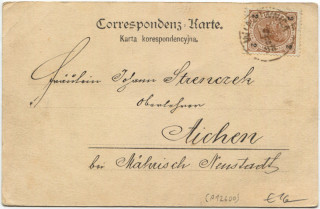 Correspondenz-Karte.
Karta korespondencyjna.
Fräulein Johann Strenczek
Oberlehrer
Aichen
bei Mährisch Neustadt
(A12600)